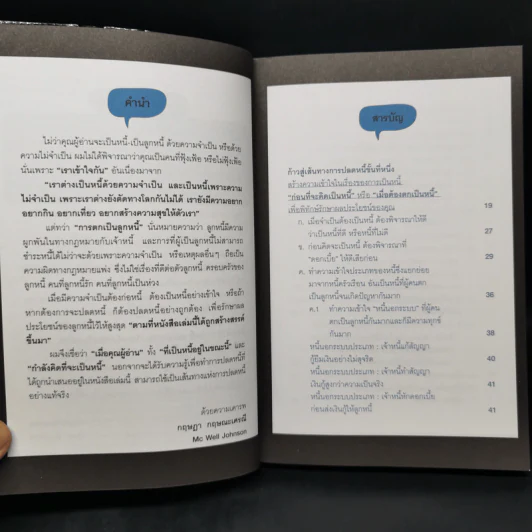 คำนำ
ไม่ว่าคุณผู้อ่านจะเป็นหนี้-เป็นลูกหนี้ ด้วยความจำเป็น หรือด้วย
ความไม่จำเป็น ผมไม่ได้พิจารณาว่าคุณเป็นคนที่ฟุ้งเฟ้อ หรือไม่ฟุ้งเฟ้อ
นั่นเพราะ "เราเข้าใจกัน" อันเนื่องมาจาก
"เราต่างเป็นหนี้ด้วยความจำเป็น และเป็นหนี้เพราะความ
ไม่จำเป็น เพราะเราต่างยังตัดทางโลกกันไม่ได้ เรายังมีความอยาก
อยากกิน อยากเที่ยว อยากสร้างความสุขให้ตัวเรา"
แต่ทว่า "การตกเป็นลูกหนี้" นั่นหมายความว่า ลูกหนี้มีความ
ผูกพันในทางกฎหมายกับเจ้าหนี้ และการที่ผู้เป็นลูกหนี้ไม่สามารถ
ชำระหนี้ได้ไม่ว่าจะด้วยเพราะความจำเป็น หรือเหตุผลอื่นๆ ถือเป็น
ความผิดทางกฎหมายแพ่ง ซึ่งไม่ใช่เรื่องที่ดีต่อตัวลูกหนี้ ครอบครัวของ
ลูกหนี้ คนที่ลูกหนี้รัก คนที่ลูกหนี้เป็นห่วง
เมื่อมีความจำเป็นต้องก่อหนี้ ต้องเป็นหนี้อย่างเข้าใจ หรือถ้า
หากต้องการจะปลดหนี้ ก็ต้องปลดหนี้อย่างถูกต้อง เพื่อรักษาผล
ประโยชน์ของลูกหนี้ไว้ให้สูงสุด "ตามที่หนังสือเล่มนี้ได้ถูกสร้างสรรค์
ขึ้นมา"
ผมจึงเชื่อว่า "เมื่อคุณผู้อ่าน" ทั้ง "ที่เป็นหนี้อยู่ในขณะนี้" และ
"กำลังคิดที่จะเป็นหนี้" นอกจากจะได้ความรู้เพื่อทำการปลดหนี้ที่
ได้ถูกนำเสนออยู่ในหนังสือเล่มนี้ สามารถใช้เป็นเส้นทางแห่งการปลดหนี้
อย่างแท้จริง
ด้วยความเคารพ
กฤษฎา กฤษณะเศรณี
Mc Well Johnson
สารบัญ
ก้าวสู่เส้นทางการปลดหนี้ขั้นที่หนึ่ง
สร้างความเข้าใจในเรื่องของการเป็นหนี้
"ก่อนที่จะคิดเป็นหนี้" หรือ "เมื่อต้องตกเป็นหนี้"
เพื่อพิทักษ์รักษาผลประโยชน์ของคุณ 19
ก. เมื่อจำเป็นต้องเป็นหนี้ ต้องพิจารณาให้ดี
ว่าเป็นหนี้ที่ดี หรือหนี้ที่ไม่ดี 27
ข. ก่อนคิดจะเป็นหนี้ ต้องพิจารณาที่
"ดอกเบี้ย" ให้ดีเสียก่อน 29
ค. ทำความเข้าใจประเภทของหนี้ซึ่งแยกย่อย
มาจากหนี้ครัวเรือน อันเป็นหนี้ที่ผู้คนตก
เป็นลูกหนี้จนเกิดปัญหากันมาก 36
ค.1 ทำความเข้าใจ "หนี้นอกระบบ" ที่ผู้คน
ตกเป็นลูกหนี้กันมากและก็มีความทุกข์
กันมาก 38
หนี้นอกระบบประเภท : เจ้าหนี้แก้สัญญา
กู้ยืมเงินอย่างไม่สุจริต 40
หนี้นอกระบบประเภท : เจ้าหนี้ทำสัญญา
เงินกู้สูงกว่าความเป็นจริง 41
หนี้นอกระบบประเภท : เจ้าหนี้หักดอกเบี้ย
ก่อนส่งเงินกู้ให้ลูกหนี้ 41